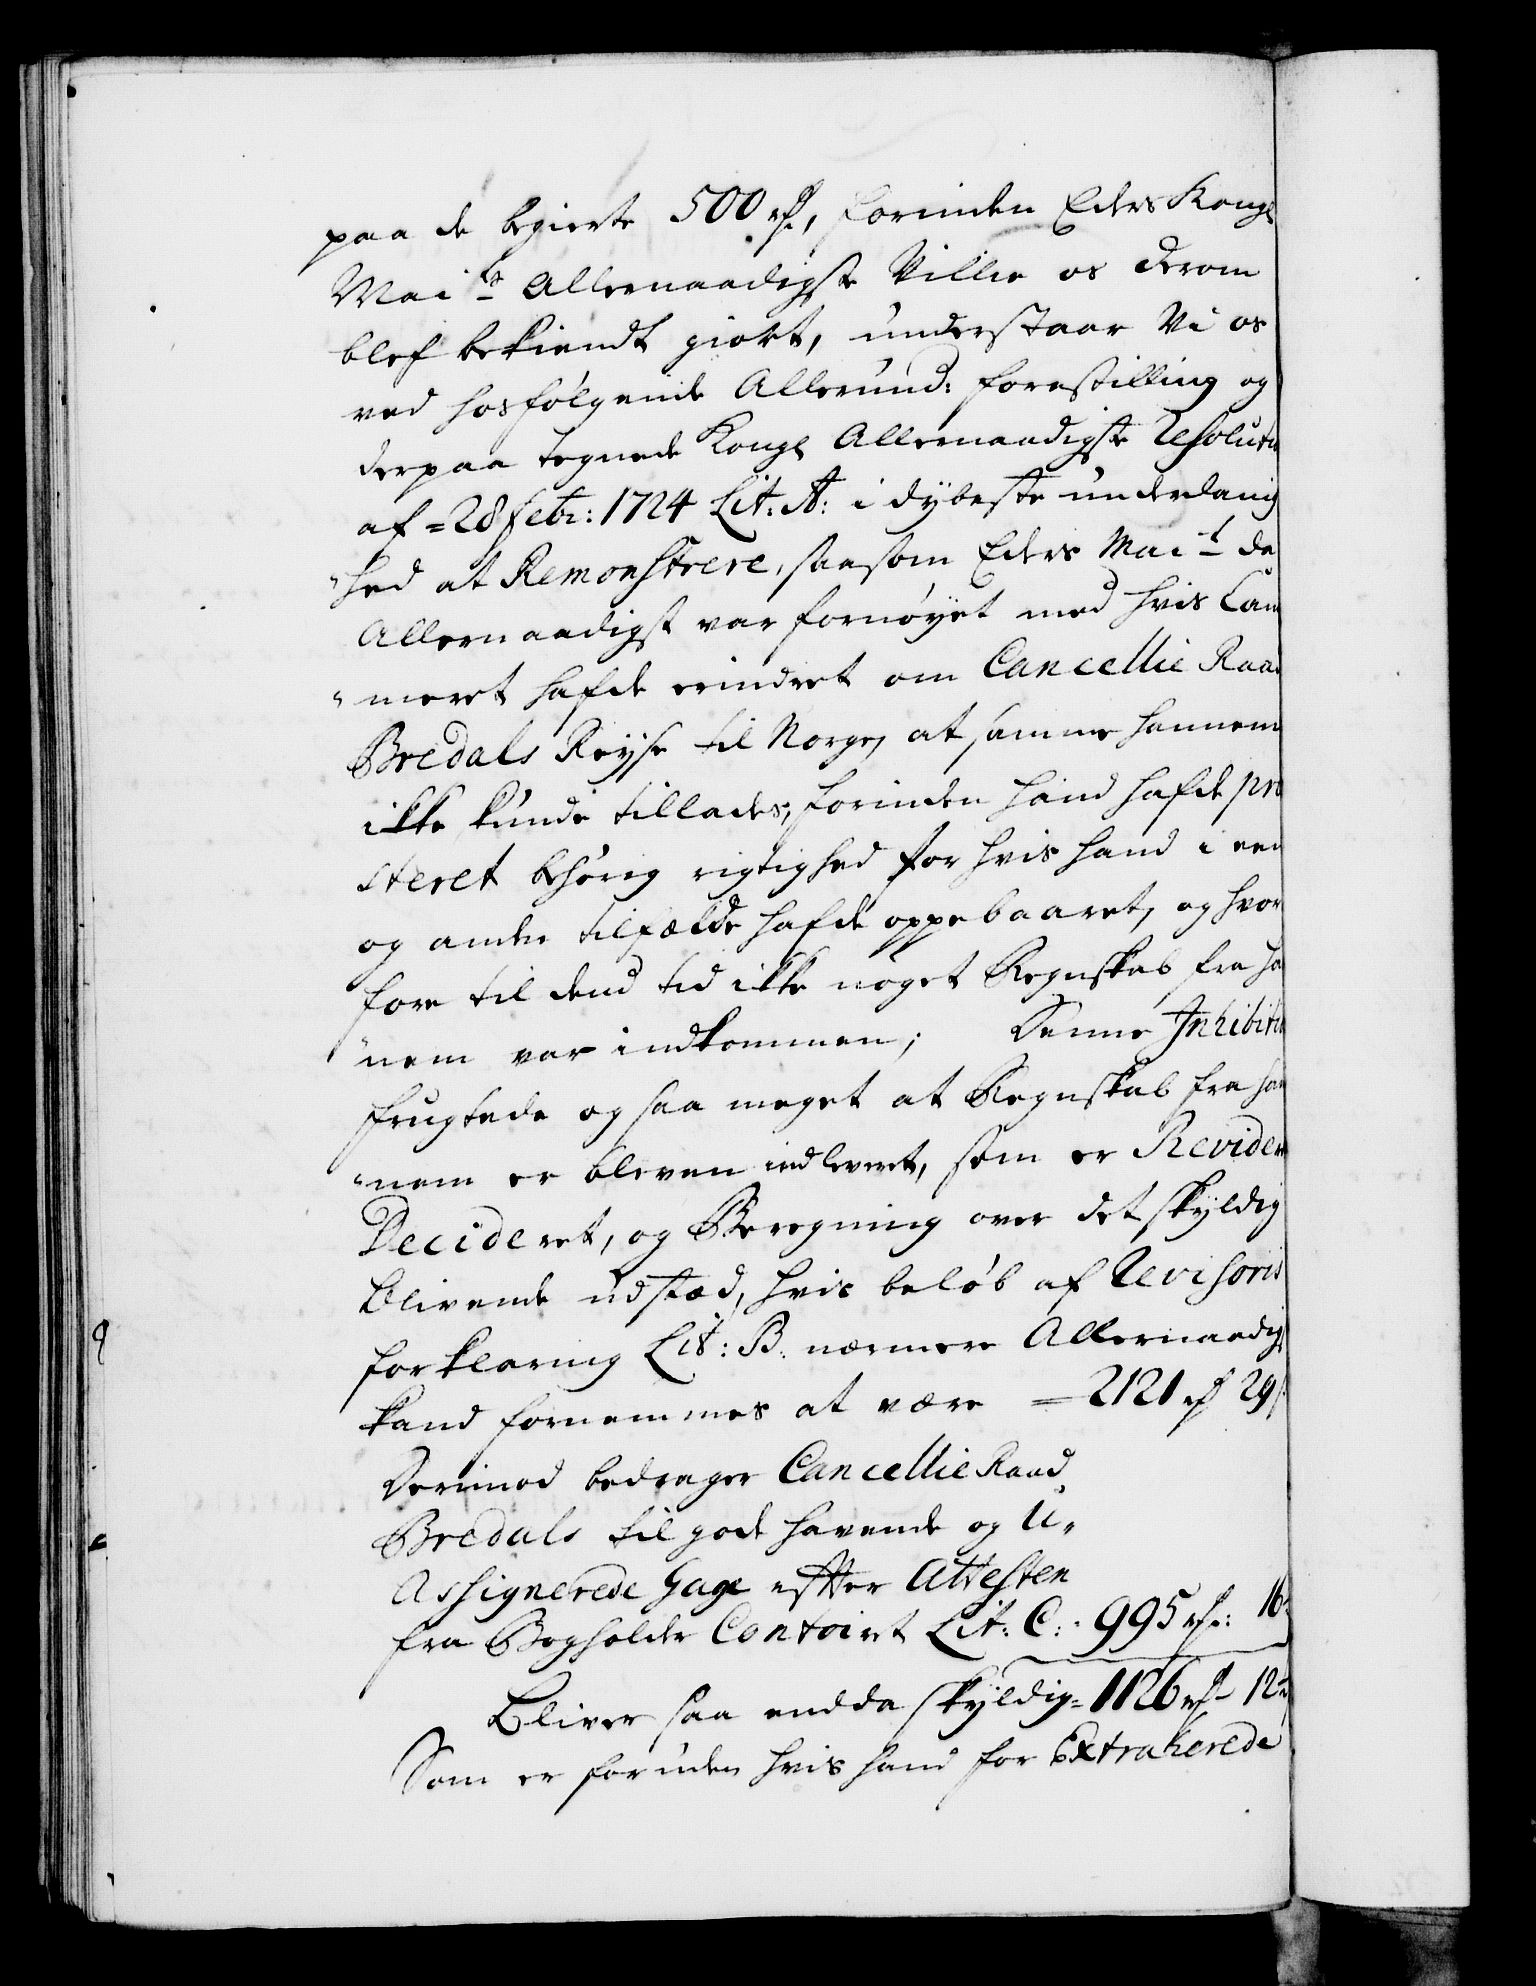 paa de begierte 500 rd, forinden Eders Kongl
Mai.ts Allernaadigste Villie os derom
blef bekiendt giort, understaar Vi os
ved hosfølgende Allerund: forestilling og
derpaa tegnede Kongl Allernaadigste Resolutio
af = 28 Febr: 1724 Lit: A: i dybeste underdanig
"hed at Remonstrere, saasom Eders Mai.t da
Allernaadigst var fornøyet med hvis Cam
"meret hafde erindret om Cancellie Raad
Bredals Reyse til Norge, at samme hannem
ikke kunde tillades, forinden hand hafde præ
steret behørig rigtighed for hvis hand i een
og anden tilfælde hafde oppebaaret, og hvor
fore til dend tid ikke noget Regnskab fra ha
"nem var indkommen; Denne Inhibition
frugtede og saa meget at Regnskab fra han
"nem er bleven indleveret, som er Revideret
Decideret, og Beregning over det skyldig
blivende udstæd, hvis beløb af Revisoris
forklaring Lit: B. nærmere Allernaadigst
kand fornemmes at være = 2121 rd 29 s
Derimod bedrager Cancellie Raad
Bredals til gode havende og U„
Assignerede Gage efter Attesten
fra Bogholder Contoiret Lit: C: 995 rd: 16
Bliver saa endda skyldig = 1126 rd 12
Som er foruden hvis hand for Extraherede